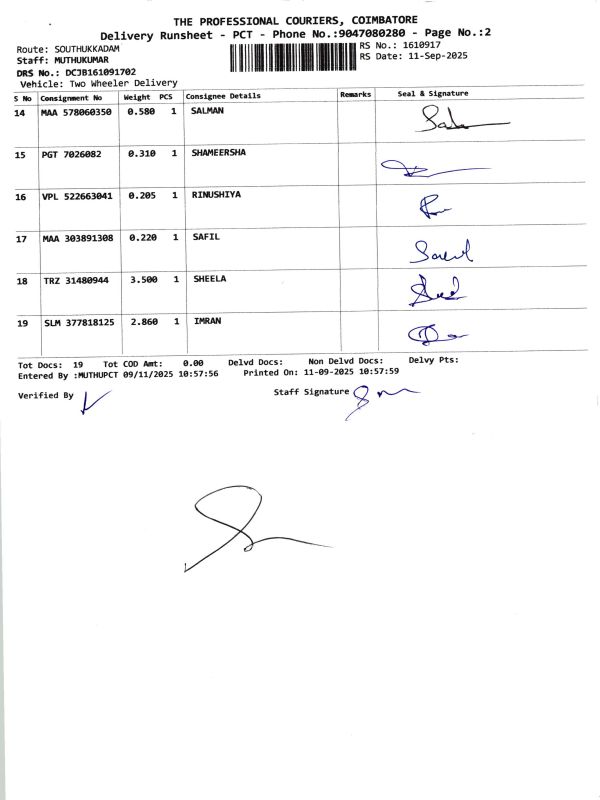 THE PROFESSIONAL COURIERS, COIMBATORE
Delivery Runsheet - PCT - Phone No.:9047080280 - Page No.:2
Route: SOUTHUKKADAM
RS No.: 1610917
Staff: MUTHUKUMAR
RS Date: 11-Sep-2025
DRS No.: DCJB161091702
Vehicle: Two Wheeler Delivery
S No Consignment No Weight PCS Consignee Details Remarks Seal & Signature
14 MAA 578060350 0.580 1 SALMAN
15 PGT 7026082 0.310 1 SHAMEERSHA
16 VPL 522663041 0.205 1 RINUSHIYA
17 MAA 303891308 0.220 1 SAFIL
18 TRZ 31480944 3.500 1 SHEELA
19 SLM 377818125 2.860 1 IMRAN
Tot Docs: 19 Tot COD Amt: 0.00 Delvd Docs: Non Delvd Docs: Delvy Pts:
Entered By :MUTHUPCT 09/11/2025 10:57:56 Printed On: 11-09-2025 10:57:59
Verified By Staff Signature